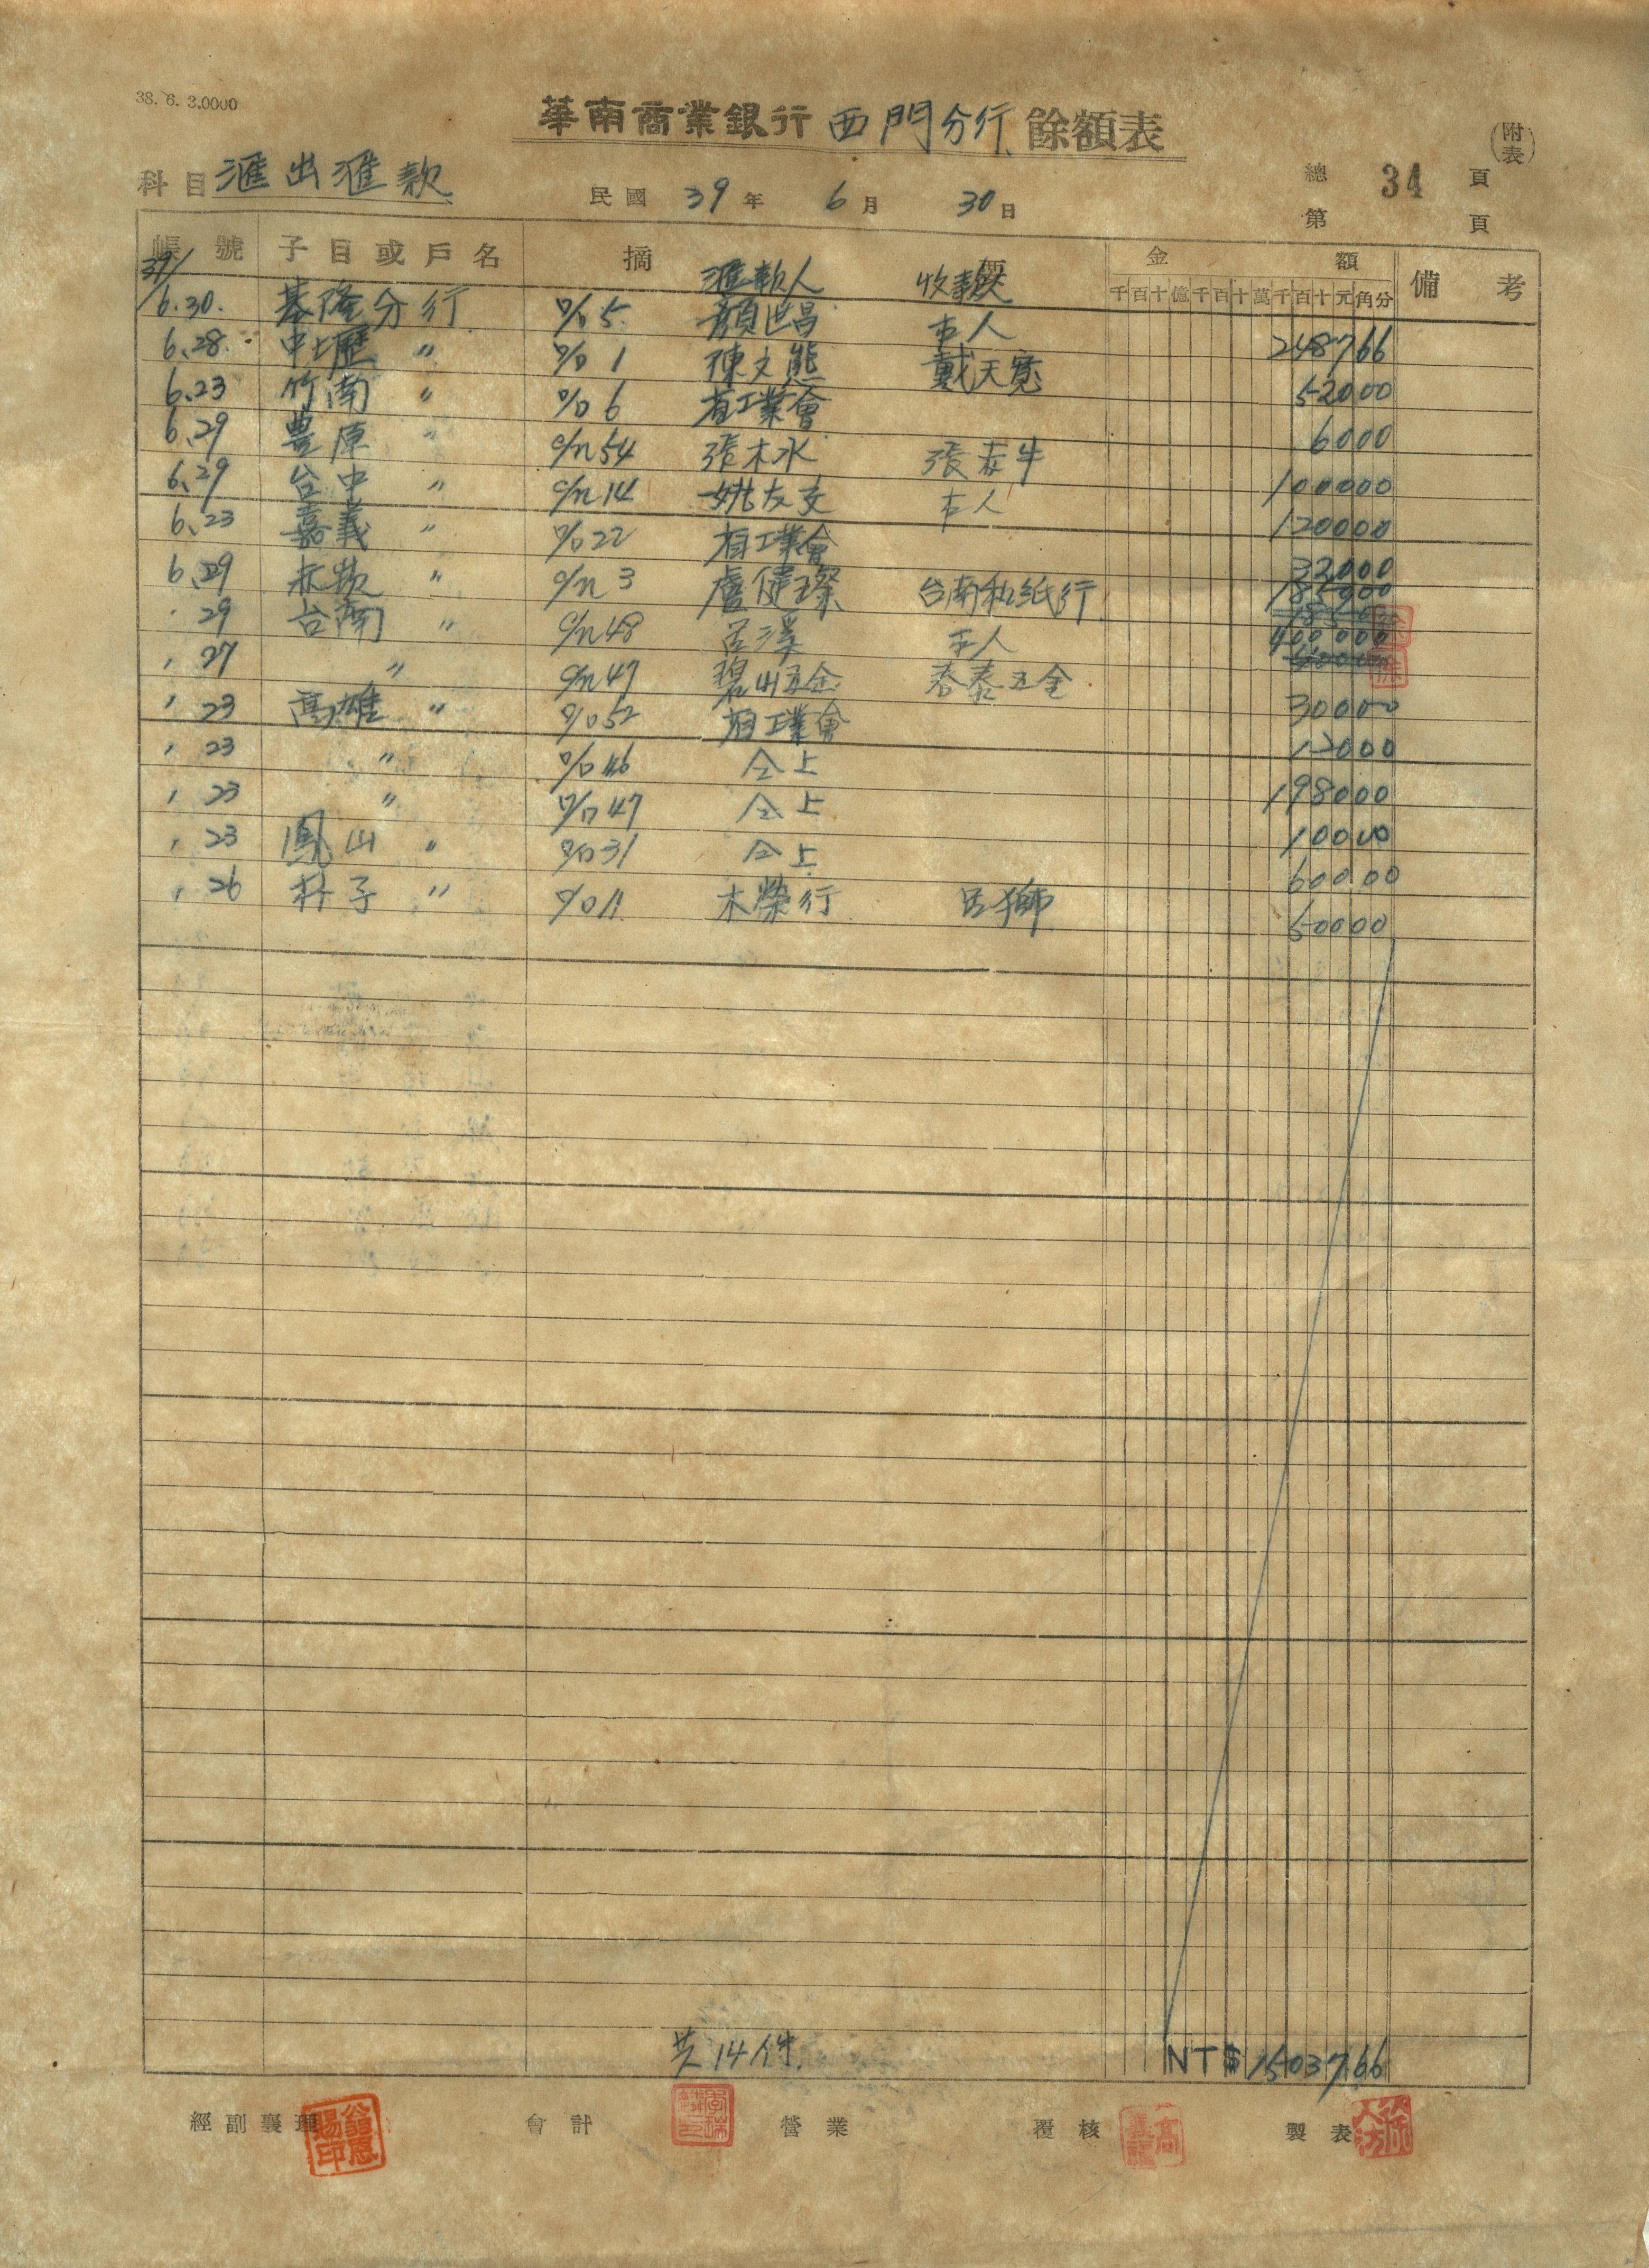 38. 6. 3.0000
華南商業銀行 西門分行 餘額表
(附表)
科目 滙出滙款
民國 39年 6月 30日
總 34 頁
第 頁
帳號 子目或戶名 摘要 金額 備考
滙款人 收款人
千百十億千百十萬千百十元角分
39/
6.30. 基隆分行 D/D 5. 顏世昌 本人 248766
6.28. 中壢 〃 D/D 1 陳文熊 戴天寬 52000
6.23 竹南 〃 D/D 6 省工業會 6000
6.29 豊原 〃 C/N 54 張木水 張泰牛 100000
6.29 台中 〃 C/N 14 姚友交 本人 120000
6.23 嘉義 〃 D/D 22 省工業會 32000
6.29 赤崁 〃 C/N 3 盧健璨 台南和紙行 185000
29 台南 〃 C/N 48 呂漢 本人 400000
27 〃 C/N 47 碧山五金 春泰五金 30000
23 高雄 〃 D/D 52 省工業會 12000
23 〃 D/D 46 仝上 198000
23 〃 D/D 47 仝上 10000
23 鳳山 〃 D/D 31 仝上 60000
26 朴子 〃 D/D 11 木榮行 呂獅 50000
共14件. NT$1503766
經副襄理 會計 營業 覆核 製表